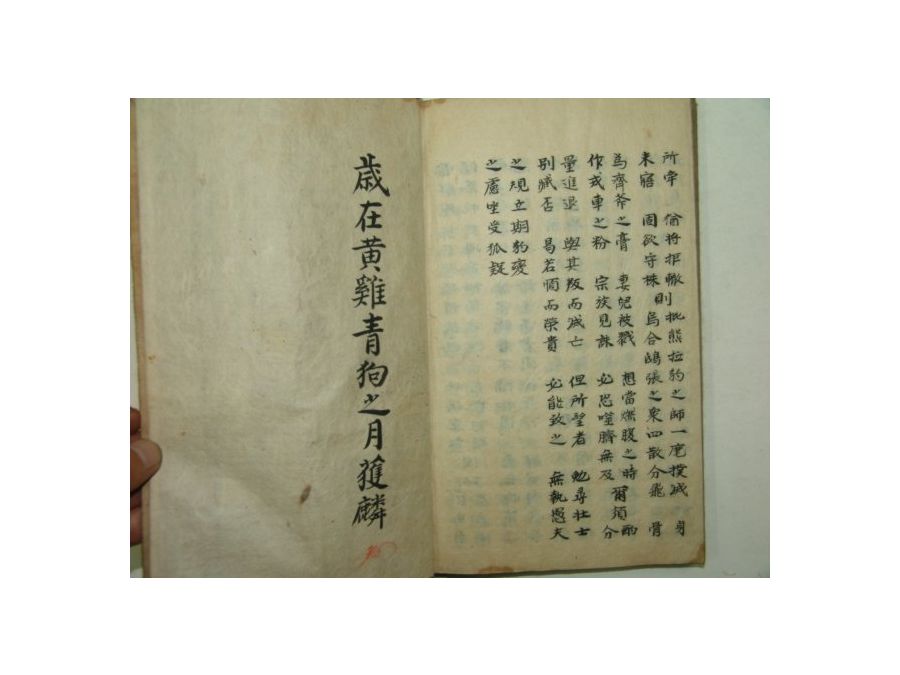 所牢 倘將拒轍則批熊拉豹之師一麾撲滅 身
未寤 固欲守株則烏合鴟張之衆四散分飛 骨
爲齊斧之膏 妻兒被戮 想當燃腹之時 爾須酌
作戎車之粉 宗族見誅 必恐噬臍無及 分
量進退 與其叛而滅亡 但所望者 勉尋壯士
別臧否 曷若順而榮貴 必能致之 無執愚夫
之規立期豹變
之慮坐受狐疑
歲在黃雞青狗之月獲麟